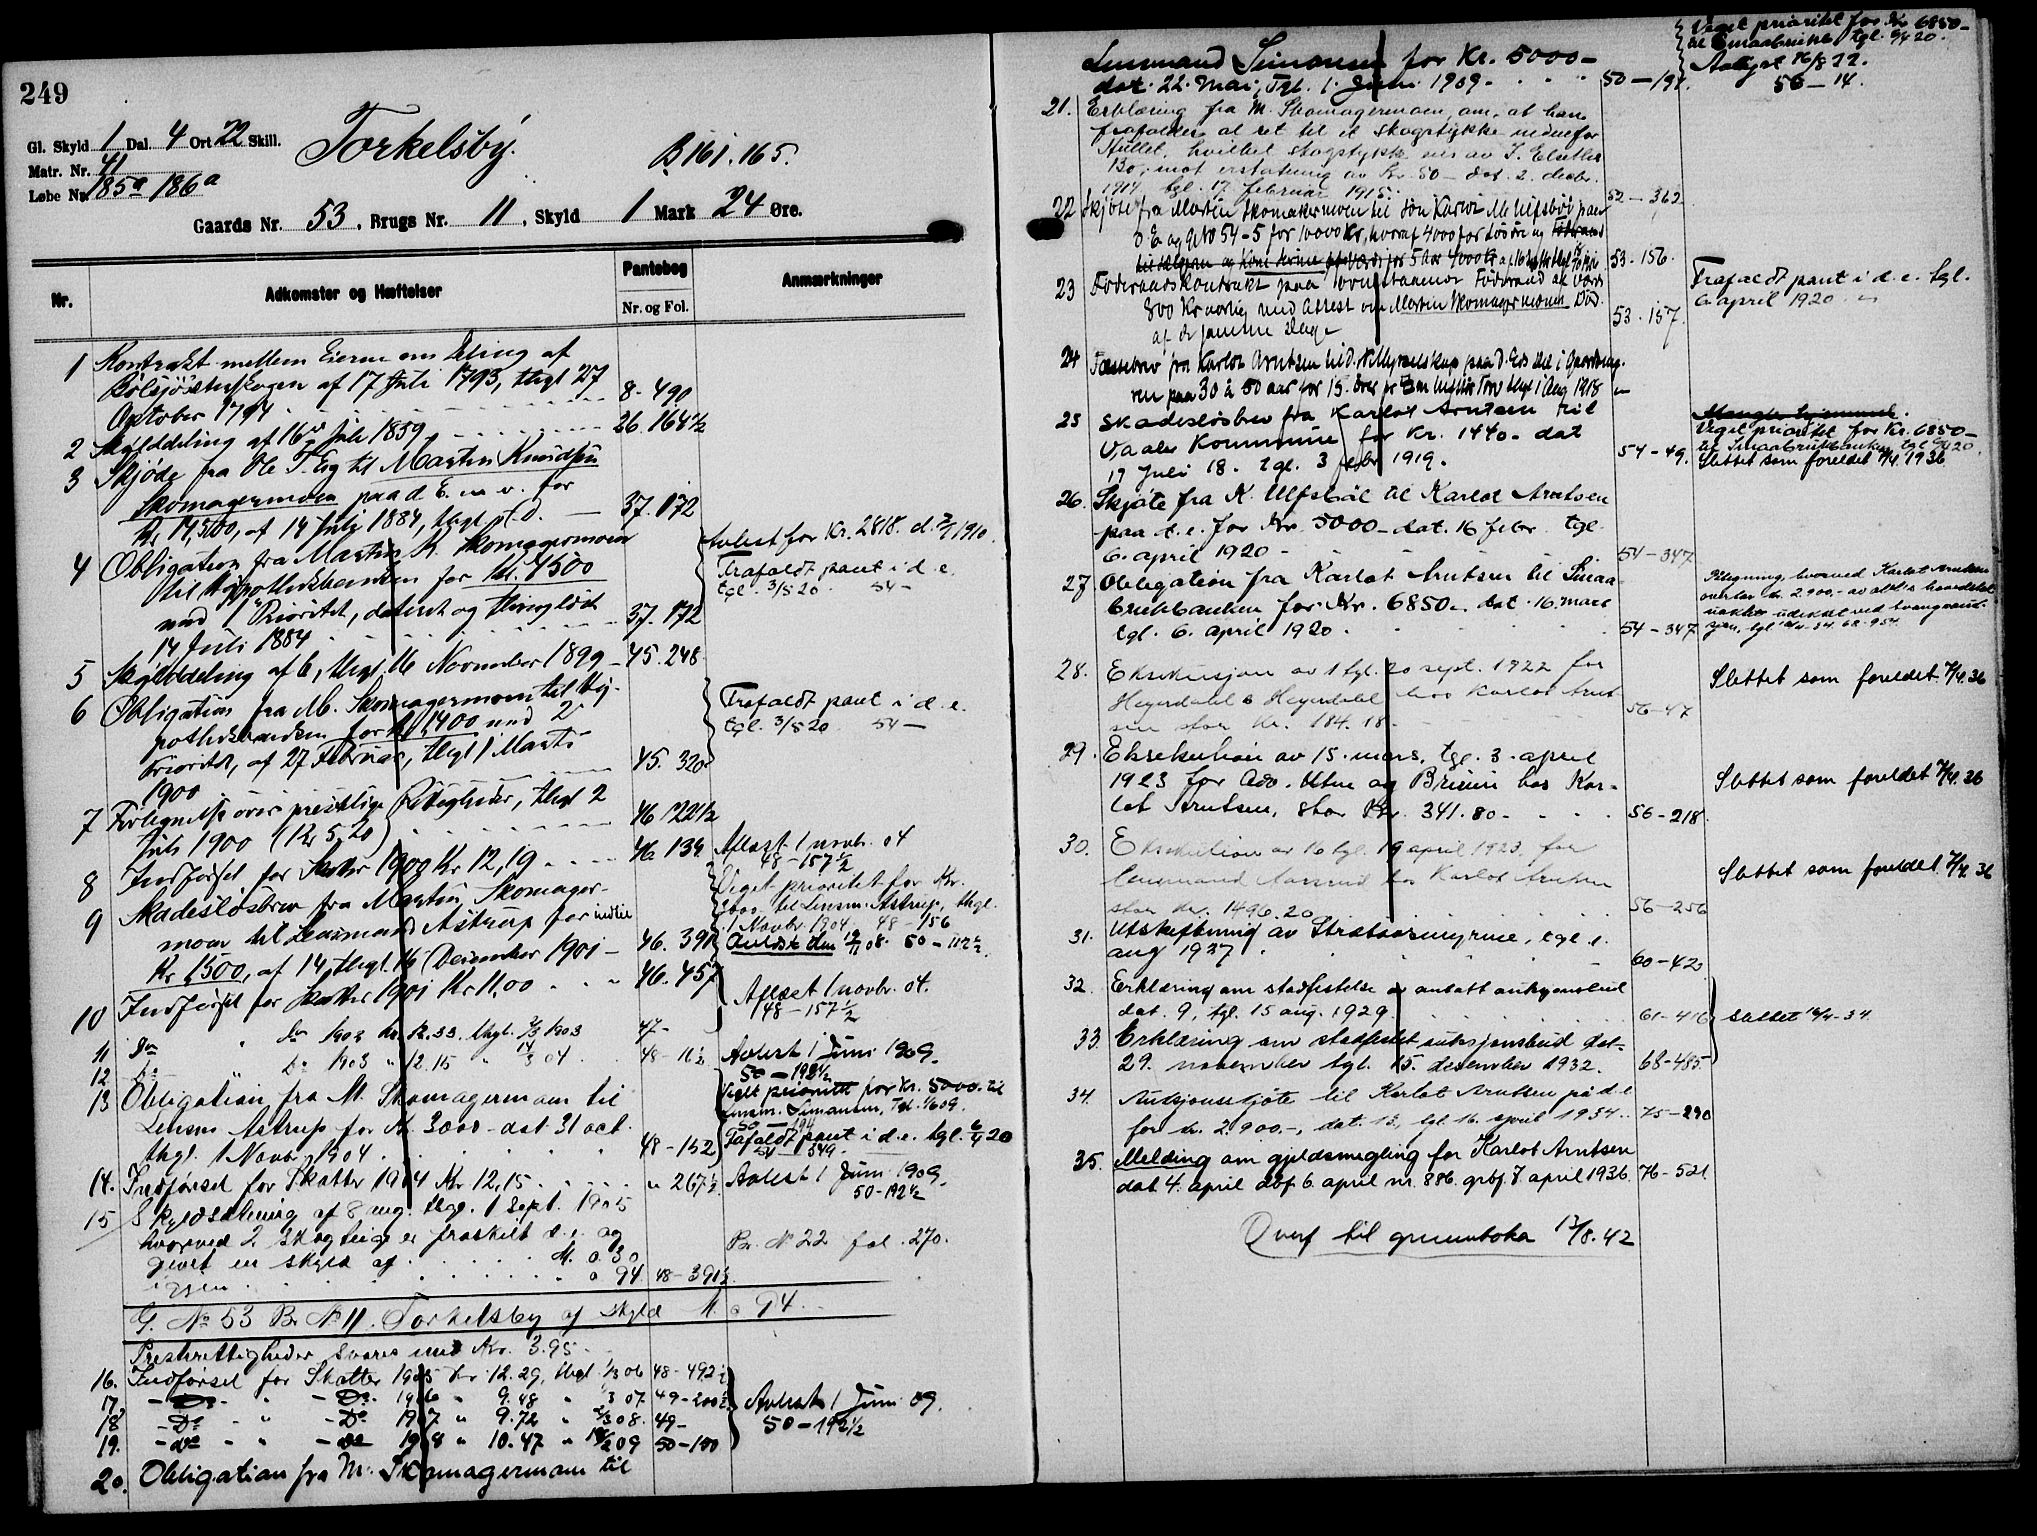 249
Gl. Skyld 1 Dal. 4 Ort 22 Skill.
Matr. Nr. 41
Løbe Nr. 185a 186a
Torkelsby.
B 161.165.
Gaards Nr. 53, Brugs Nr. 11, Skyld 1 Mark 24 Øre.
Nr.
Adkomster og Hæftelser
Pantebog
Nr. og Fol.
Anmærkninger
1 Kontrakt mellem Eierne om Deling af
Bølsjøsæterskogen af 17 Juli 1793, thgl 27
October 1794 8-490
2 Skylddeling af 16 Juli 1859 26.164½
3 Skjøde fra Ole T. Eig til Martin Knudsen
Skomagermoen paa d. E. m. v. for
Kr. 14,500, af 14 Juli 1884, thgl s.D. 37.172
4 Obligation fra Martin K. Skomagermoen
til Hypothekbanken for Kr. 4500
med 1 Prioritet, dateret og thinglæst
14 Juli 1884 37.172
Avlest for Kr. 2818. d. 1910.
Frafaldt pant i d. e.
tgl. 3/5 20. 54-
5 Skylddeling af 6, thgl 16 November 1899 45.248
6 Obligation fra M. Skomagermoen til Hy-
pothekbanken for Kr 1,400 med 2
Prioritet, af 27 Februar, thgl 1 Marts
1900 45.320
Frafaldt pant i d. e.
tgl. 3/5 20 54-
7 Forlegnelse over prestlige Rettigheder, thgl 2
Juli 1900 (Kr 5,20) 46.122½
8 Indførsel for Skatter 1900 Kr 12,19 46.134
Aflæst 1 novbr. 04
48-157½
9 Skadesløsbrev fra Martin Skomager-
moen til Lensmand Astrup for indtil
Kr. 1500, af 14, thgl. 16 December 1901 - 46.391
Veget prioritet for Kr.
3000. til Lensm. Astrup, thgl.
1 Novbr. 1904 48-156
10 Indførsel for Skatter 1901 Kr 11,00 46.457
Aflæst 1 novbr. 04.
48-157½
11 Do " Do 1902 Kr. 12.33. thgl. 1903 47-
12 Do Do 1903 " 12,15 " 04
Avlest 1 Juni 1909.
13 Obligation fra M. Skomagermoen til
Lensm Astrup for Kr. 3000 - dat 31 oct.
thgl. 1 Novbr. 1904 48-152
Veget prioritet for Kr. 5000. til
Lensm. Simonsen, Tgl. 1/6 09.
50-194
Frafaldt pant i d. e. tgl. 6/4 20
14. Indførsel for Skatter 1904 Kr 12,15 " 267½
Avlest 1 Juni 1909.
50-192½
15 Skyldsætning af 8 aug. thgl. 1 Sept. 1905
hvorved 2 skogteige er fraskilt d. e. og
givet en skyld af M. 0.30
igjen 0 94 48-391½
Br. No 22 fol. 270.
G. No 53 Br. No 11. Torkelsby af skyld M. 0 94.
Prestrettigheder svares med Kr. 3.95
16. Indførsel for Skatter 1905 Kr. 12.29, thgl 1/3 06 48-492½
17. - Do - " - Do 1906 " 9.48 " 3 07 49-200½
18 - Do - " - Do 1907 " 9.72 " 2/3 08. 49-
19. - do - " - do 1908 " 10.47 " 2 09 50-100
Avlest 1 Juni 09.
50-192½
20. Obligation fra M. Skomagermoen til
Lensmand Simonsen for Kr. 5000-
dat. 22. Mai, Tgl. 1. Juni 1909 50-194.
Veget prioritet for Kr 6850-
til Smaabruksb. tgl. 6/4 20.
Avlyst 16/8 22.
56-14.
21. Erklæring fra M. Skomagermoen, om, at han
frafalder al ret til et skogstykke nedenfor
Hullet, hvilket skogstykke eies av
Bo, mot erstatning av Kr. 50 - dat. 2. decbr.
1914, tgl. 17. februar 1915. 52-362
22 Skjøte fra Martin Skomakermoen til Søn Karlot M. Ulfsbøl paa
D. E. og G No 54-5 for 10000 Kr, hvoraf 4000 for Løsøre 53-156
23 Föderaadskontrakt paa Föderaad af Værdi
800 Kr aarlig med Attest om Martin Skomagermoens Död
af de samme Dage 53.157.
Frafaldt pant i d. e. tgl.
6 april 1920
24 Fæstebrev fra Karlot Arntsen
paa 30 à 50 aar for 15. Öre pr 1 Aug 1918
25 Skadesløsbrev fra Karlot Arntsen til
Vaaler Kommune for Kr. 1440- dat
17 Juli 18. tgl. 3 febr 1919. 54-49.
Veget prioritet for Kr. 6850-
til Smaabrukbanken tgl 6/4 1920.
Slettet som foreldet 7/4 1936
26. Skjøte fra K. Ulfsbøl til Karlot Arntsen
paa d. e. for Kr. 5000- dat. 16 febr. tgl.
6. april 1920 54-347
27. Obligation fra Karlot Arntsen til Smaa-
brukbanken for Kr. 6850.- dat. 16. mars
tgl. 6. april 1920. 54-347
Karlot Arntsen
overtar kr. 2.900.-
28. Eksekusjon av 1 tgl. 20 sept. 1922 for
Heyerdahl & Heyerdahl hos Karlot Arnt-
sen stor kr. 184.18 56-47
Slettet som foreldet. 7/4 36
29. Eksekution av 15. mars, tgl. 3. april
1923 for Adv. og hos Kar-
lot Arntsen, stor Kr. 341.80 - 56-218.
Slettet som foreldet 7/4 36
30. Eksekution av 16 tgl. 19 april 1923, for
lensmand hos Karlot Arntsen
stor kr. 1496.20 56-256
Slettet som foreldet. 7/4 36
31. Utskiftning av, tgl 2.
aug 1927 60-420
32. Erklæring om stadfestelse av antatt auksjonsbud
dat. 9, tgl. 15 aug. 1929 61-416
33. Erklæring om stadfestet auksjonsbud dat.
29. november tgl. 15. desember 1932. 68-485.
slettet 16/4-34.
34. Auksjonsskjøte til Karlot Arntsen på d.e
for kr. 2.900.-, dat. 13, tgl. 16 april 1934. 75-290
35. Melding om gjeldsmegling for Karlot Arntsen
dat. 4. april dbf. 6. april nr. 886. grbf. 7. april 1936. 76-521.
Overf til grunnboka 13/8. 42